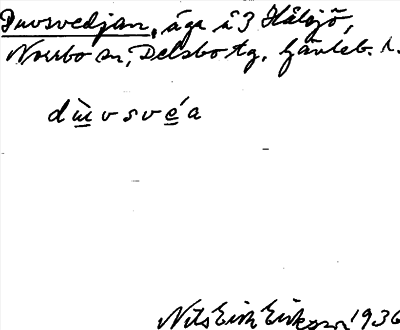 Duvsvedjan, äga i 3 Hålsjö,
Norrbo sn, Delsbo tg. Gävleb. l.
dùvsvéa
Nils Erik Eriksson 1936